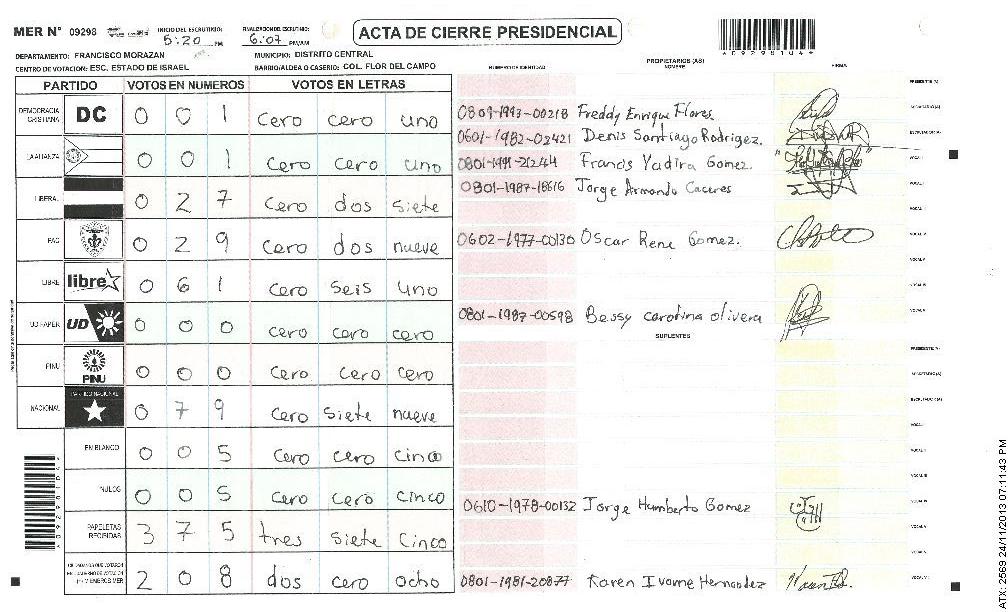 MER N° 09298 INICIO DEL ESCRUTINIO: 5:20 PM FINALIZACION DEL ESCRUTINIO: 6:07 PM/AM ACTA DE CIERRE PRESIDENCIAL
DEPARTAMENTO: FRANCISCO MORAZAN MUNICIPIO: DISTRITO CENTRAL
CENTRO DE VOTACION: ESC. ESTADO DE ISRAEL BARRIO/ALDEA O CASERIO: COL. FLOR DEL CAMPO
PARTIDO VOTOS EN NUMEROS VOTOS EN LETRAS
DEMOCRACIA CRISTIANA DC 0 0 1 cero cero uno
LA ALIANZA 0 0 1 cero cero uno
LIBERAL 0 2 7 cero dos siete
PAC 0 2 9 cero dos nueve
LIBRE libre 0 6 1 cero seis uno
UD FAPER UD 0 0 0 cero cero cero
PINU PINU 0 0 0 cero cero cero
NACIONAL PARTIDO NACIONAL 0 7 9 cero siete nueve
EN BLANCO 0 0 5 cero cero cinco
NULOS 0 0 5 cero cero cinco
PAPELETAS RECIBIDAS 3 7 5 tres siete cinco
2 0 8 dos cero ocho
NUMERO DE IDENTIDAD PROPIETARIOS (AS) NOMBRE FIRMA
PRESIDENTE (A)
0809-1993-00218 Freddy Enrique Flores SECRETARIO (A)
0601-1982-02421 Denis Santiago Rodrigez. ESCRUTADOR (A)
0801-1991-21244 Francis Yadira Gomez. VOCAL I
0801-1987-18616 Jorge Armando Caceres
0602-1977-00130 Oscar Rene Gomez.
0801-1987-00598 Bessy carolina olivera
SUPLENTES
PRESIDENTE (A)
SECRETARIO (A)
ESCRUTADOR (A)
0610-1978-00132 Jorge Humberto Gomez
0801-1981-20877 Karen Ivonne Hernandez
ATX-2569 24/11/2013 07:11:43 PM